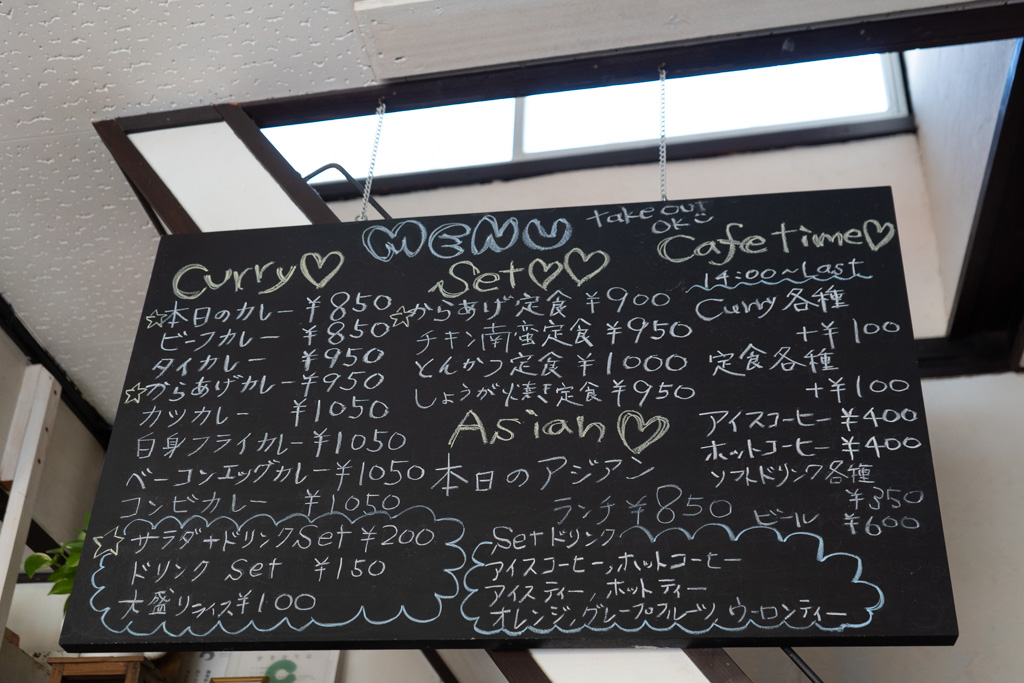 MENU
take out
OK
Curry
☆本日のカレー ¥850
ビーフカレー ¥850
タイカレー ¥950
☆からあげカレー ¥950
カツカレー ¥1050
白身フライカレー ¥1050
ベーコンエッグカレー ¥1050
コンビカレー ¥1050
☆サラダ+ドリンクSet ¥200
ドリンク Set ¥150
大盛りライス ¥100
Set
☆からあげ定食 ¥900
チキン南蛮定食 ¥950
とんかつ定食 ¥1000
しょうが焼き定食 ¥950
Asian
本日のアジアン
ランチ ¥850
Cafe time
14:00~Last
Curry各種
+¥100
定食各種
+¥100
アイスコーヒー ¥400
ホットコーヒー ¥400
ソフトドリンク各種
¥350
ビール ¥600
Setドリンク
アイスコーヒー,ホットコーヒー
アイスティー,ホットティー
オレンジ,グレープフルーツ,ウーロンティー